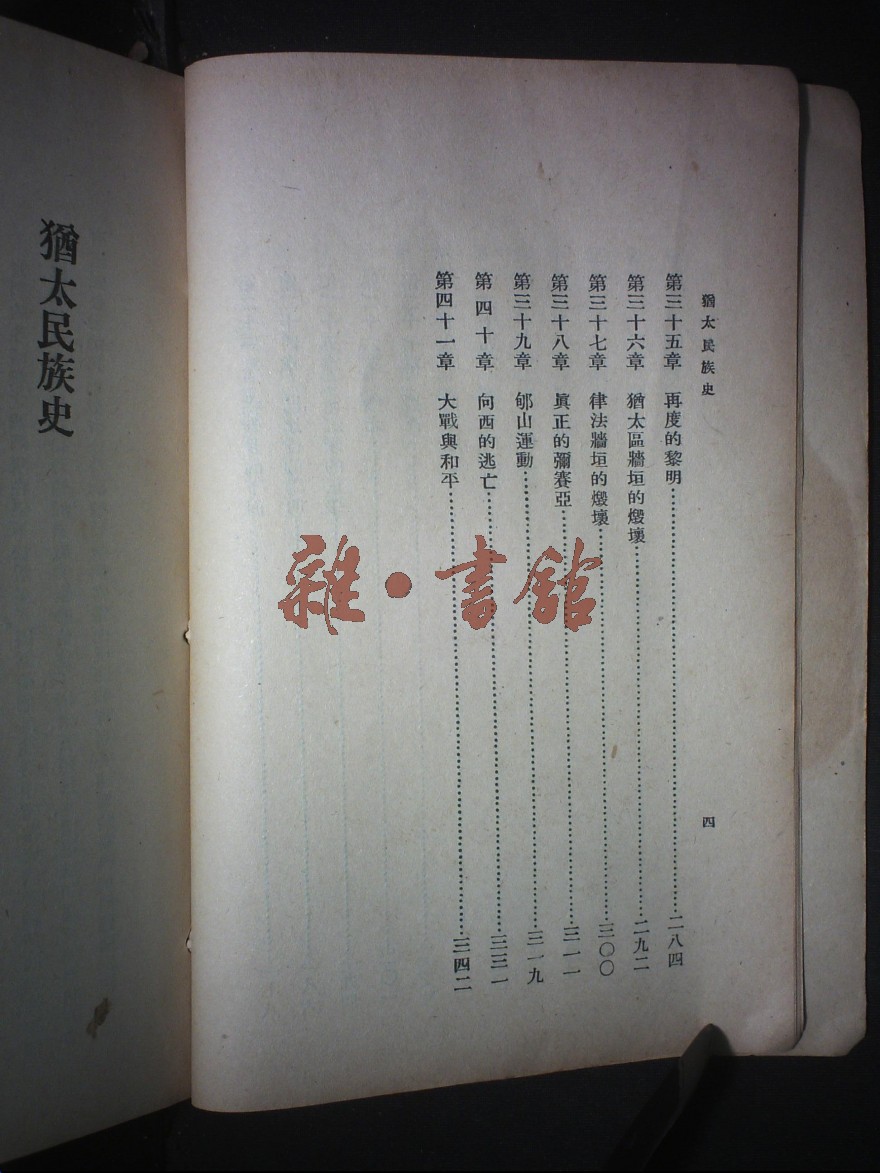 猶太民族史
四
第三十五章 再度的黎明……二八四
第三十六章 猶太區牆垣的燬壞……二九二
第三十七章 律法牆垣的燬壞……三〇〇
第三十八章 眞正的彌賽亞……三一一
第三十九章 郇山運動……三一九
第四十章 向西的逃亡……三三一
第四十一章 大戰與和平……三四二
雜·書館
猶太民族史